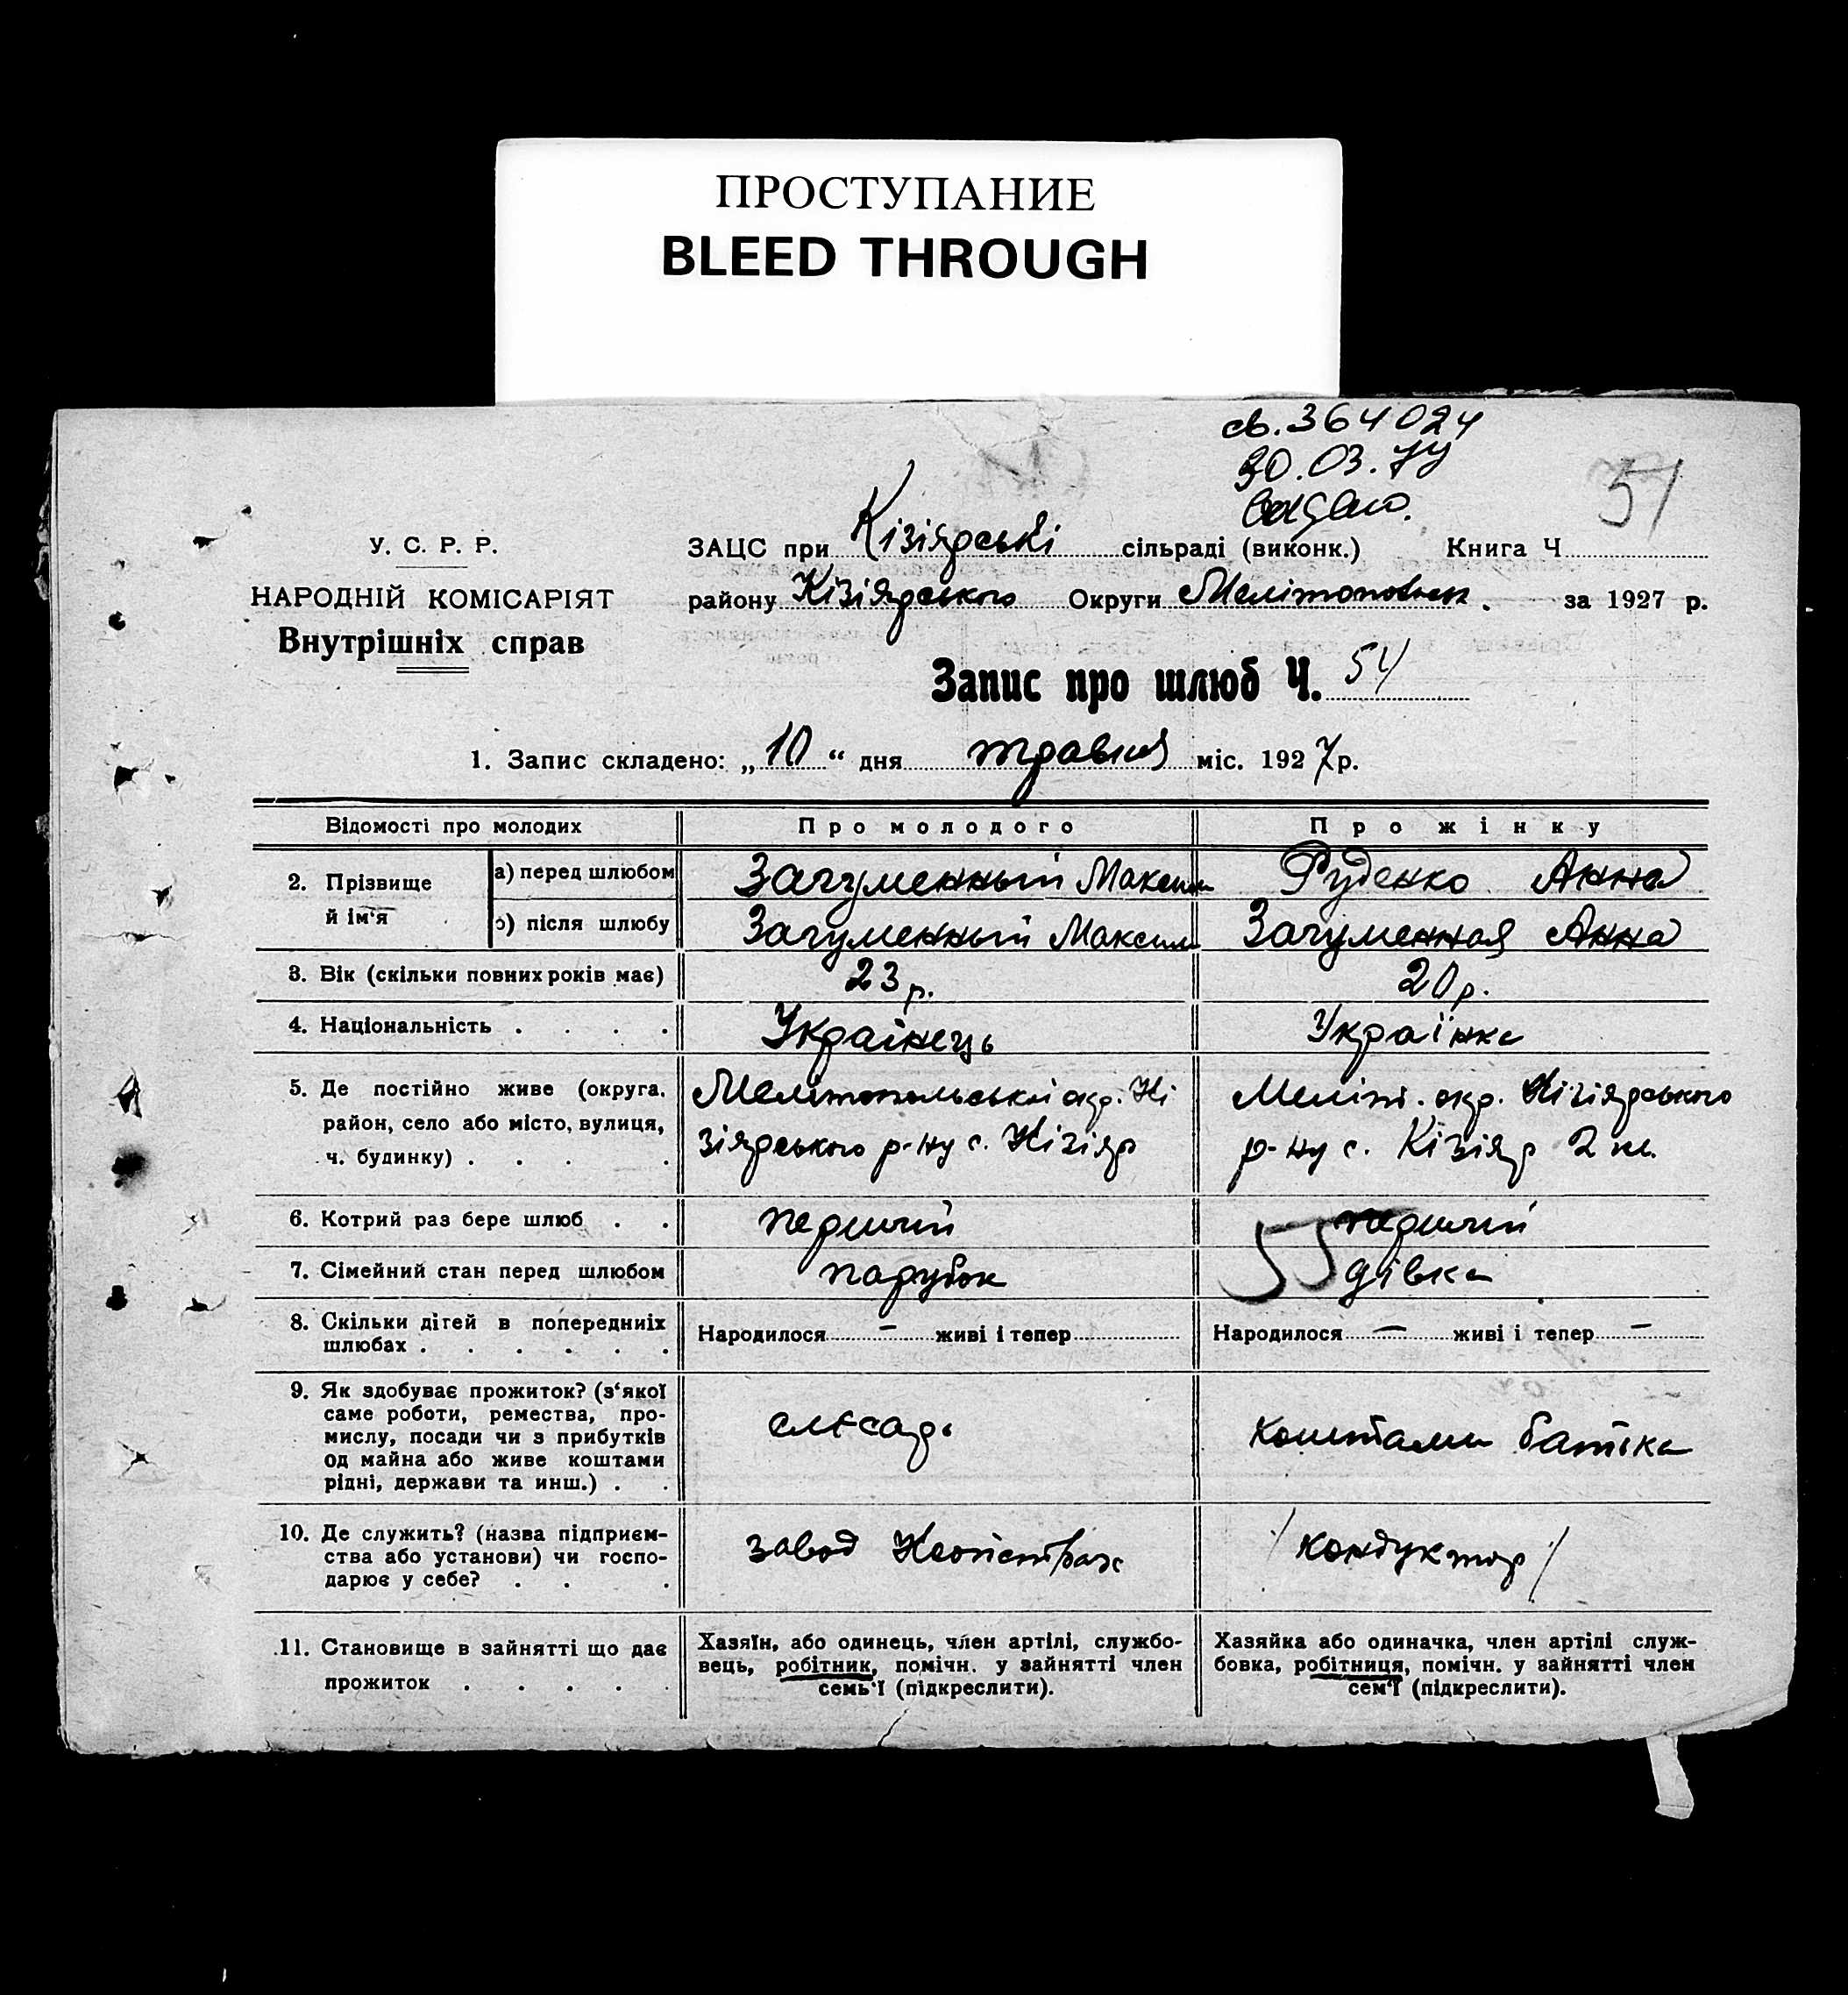 ПРОСТУПАНИЕ
BLEED THROUGH
св. 364024
30.03.77
51
У. С. Р. Р.
НАРОДНІЙ КОМІСАРІЯТ
Внутрішніх справ
ЗАЦС при Кізіярські сільраді (виконк.) Книга Ч
району Кізіярського Округи Мелітопольск. за 1927 р.
Запис про шлюб Ч. 54
1. Запис складено: „10“ дня травня міс. 1927 р.
Відомості про молодих
Про молодого
Про жінку
2. Прізвище й ім'я
а) перед шлюбом
Загуменный Максим
Руденко Анна
б) після шлюбу
Загуменный Максим
Загуменная Анна
3. Вік (скільки повних років має)
23 р.
20 р.
4. Національність . . . .
Українець
Українка
5. Де постійно живе (округа,
район, село або місто, вулиця,
ч. будинку) . . . .
Мелітопольській окр. Кі
зіярського р-ну с. Кізіяр
Меліт. окр. Кізіярського
р-ну с. Кізіяр 2
6. Котрий раз бере шлюб . .
перший
перший
55
7. Сімейний стан перед шлюбом
парубок
дівка
8. Скільки дітей в попередніх
шлюбах . . . . . .
Народилося — живі і тепер
Народилося — живі і тепер —
9. Як здобуває прожиток? (з'якої
саме роботи, ремества, про-
мислу, посади чи з прибутків
од майна або живе коштами
рідні, держави та инш.) . .
слєсарь
коштами батька
10. Де служить? (назва підприєм-
ства або установи) чи госпо-
дарює у себе? . . .
завод
/кондуктор/
11. Становище в зайнятті що дає
прожиток . . . . .
Хазяїн, або одинець, член артілі, службо-
вець, робітник, помічн. у зайнятті член
семь'ї (підкреслити).
Хазяйка або одиначка, член артілі служ-
бовка, робітниця, помічн. у зайнятті член
сем'ї (підкреслити).